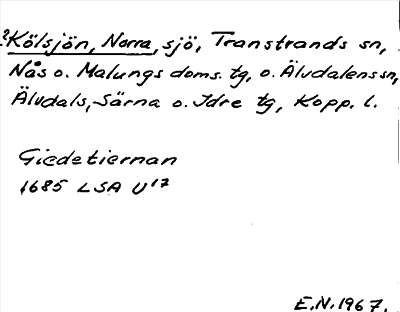 ?Kölsjön, Norra, sjö, Transtrands sn,
Nås o. Malungs doms. tg, o. Älvdalens sn,
Älvdals, Särna o. Idre tg, Kopp. l.
Giedetiernan
1685 LSA U17
E.N. 1967.